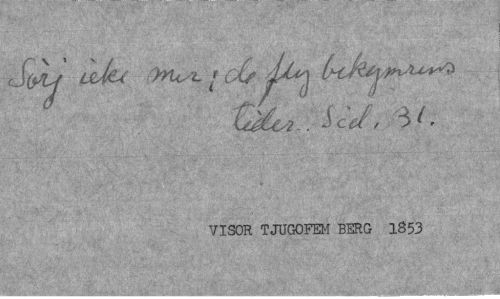 Sörj icke mer; de fly bekymrens
tider. Sid. 31.
VISOR TJUGOFEM BERG 1853